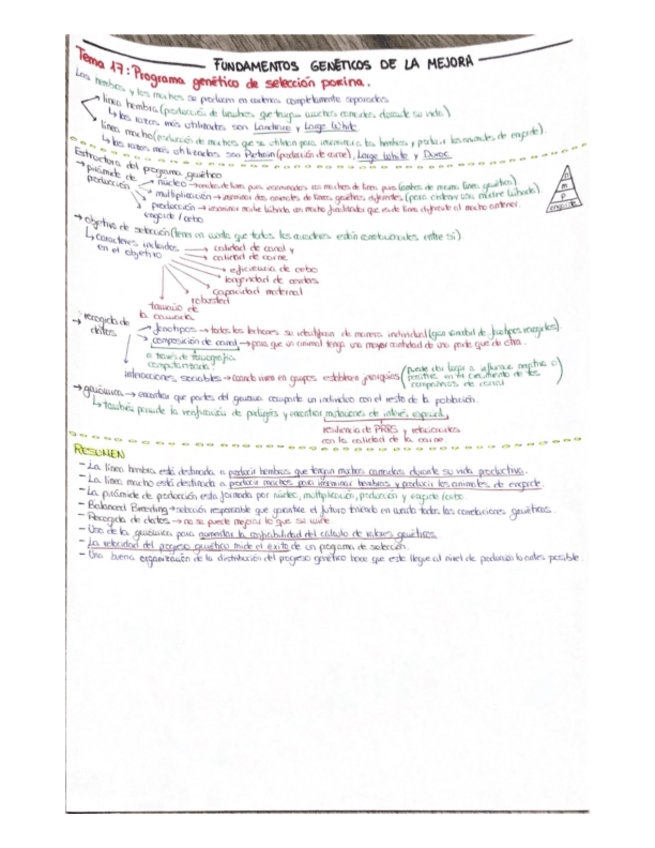 FUNDAMENTOS GENÉTICOS DE LA MEJORA
Tema 17: Programa genético de selección porcina.
Las hembras y los machos se producen en cadenas completamente separadas
línea hembra (producción de hembras que tengan muchas camadas durante su vida)
↳ las razas más utilizadas son Landrace y Large White
línea macho (producción de machos que se utilizan para inseminar a las hembras y producir los animales de engorde).
↳ las razas más utilizadas son Pietrain (producción de carne), Large White y Duroc
Estructura del programa genético
→ pirámide de producción
núcleo → hembras de línea pura inseminadas con machos de línea pura (ambos de misma línea genética)
multiplicación → inseminar dos animales de líneas genéticas diferentes (para obtener una madre híbrida).
producción → inseminar madre híbrida con macho finalizador que es de línea diferente al macho anterior.
engorde / cebo
n
m
p
engorde
→ objetivo de selección (tener en cuenta que todos los caracteres están correlacionados entre sí)
↳ caracteres incluidos en el objetivo
calidad de canal y
calidad de carne
eficiencia de cebo
longevidad de cerdas
capacidad maternal
robustez
tamaño de
la camada
→ recogida de datos
fenotipos → todos los lechones se identifican de manera individual (gran cantidad de fenotipos recogidos).
composición de canal → para que un animal tenga una mayor cantidad de una parte que de otra.
a través de tomografía
computarizada
interacciones sociales → cuando viven en grupos establecen jerarquías (puede dar lugar a influencia negativa o
positiva en el crecimiento de los
compañeros de corral)
→ genómica → encontrar que partes del genoma comparte un individuo con el resto de la población.
↳ también permite la verificación de pedigrís y encontrar mutaciones de interés especial,
resiliencia de PRRS y relacionadas
con la calidad de la carne.
RESUMEN
- La línea hembra está destinada a producir hembras que tengan muchas camadas durante su vida productiva.
- La línea macho está destinada a producir machos para inseminar hembras y producir los animales de engorde.
- La pirámide de producción esta formada por núcleo, multiplicación, producción y engorde/cebo.
- Balanced Breeding → selección responsable que garantice el futuro teniendo en cuenta todas las correlaciones genéticas.
- Recogida de datos → no se puede mejorar lo que se mide
- Uso de la genómica para aumentar la confiabilidad del cálculo de valores genéticos
- La velocidad del progreso genético mide el éxito de un programa de selección.
- Una buena organización de la distribución del progreso genético hace que este llegue al nivel de producción lo antes posible.